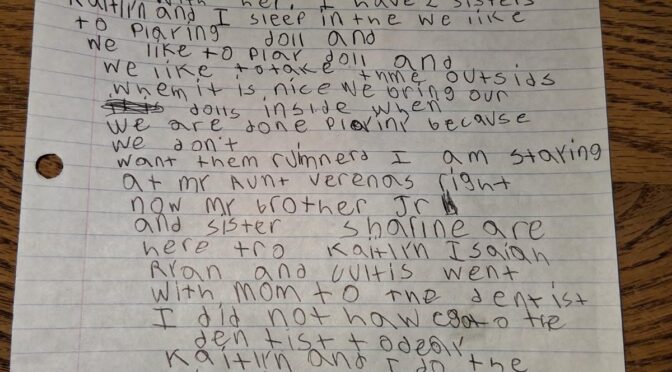 with her. I have 2 sisters
Kaitlrn and I sleep in the we like
to plaring doll and
we like to plar doll and
we like totake thme outsids
whem it is nice we bring our
dolls inside when
we are done plarinr because
we don't
want them rumnerd I am staring
at mr Aunt verenas right
now mr brother Jr
and sister sharine are
here tro Kaitlrn Isaiah
Rran and curtis went
with mom to the dentist
I did not haw to the
dentist todear
Kaitlrn and I do the